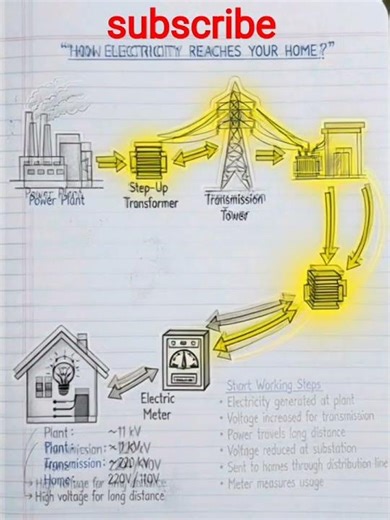 subscribe
"HOW ELECTRICITY REACHES YOUR HOME?"
Power Plant
Step-Up
Transformer
Transmission
Tower
Electric
Meter
Plant: ~11 kV
Plant:
Transmission:
Home: 220V/110V
→ High voltage for long distance
Start Working Steps
• Electricity generated at plant
• Voltage increased for transmission
• Power travels long distance
• Voltage reduced at substation
• Sent to homes through distribution line
• Meter measures usage